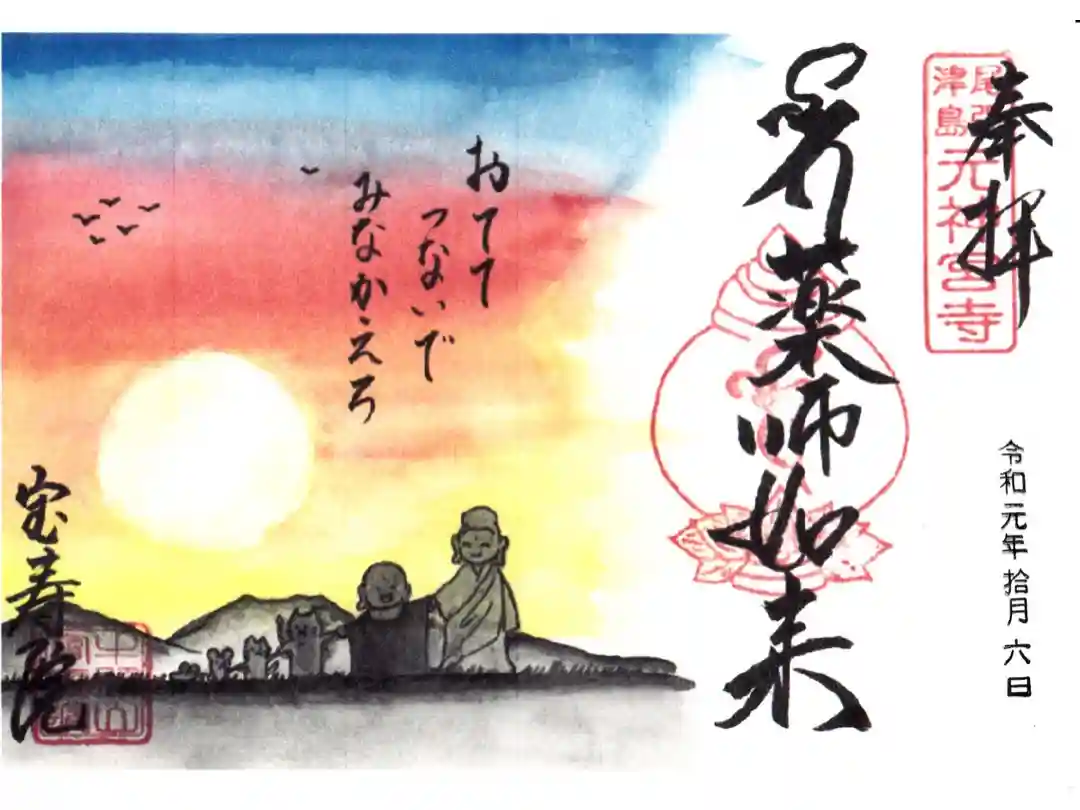 奉拝
尾張
津島
元神宮寺
令和元年拾月六日
薬師如来
おてて
つないで
みなかえろ
宝寿院